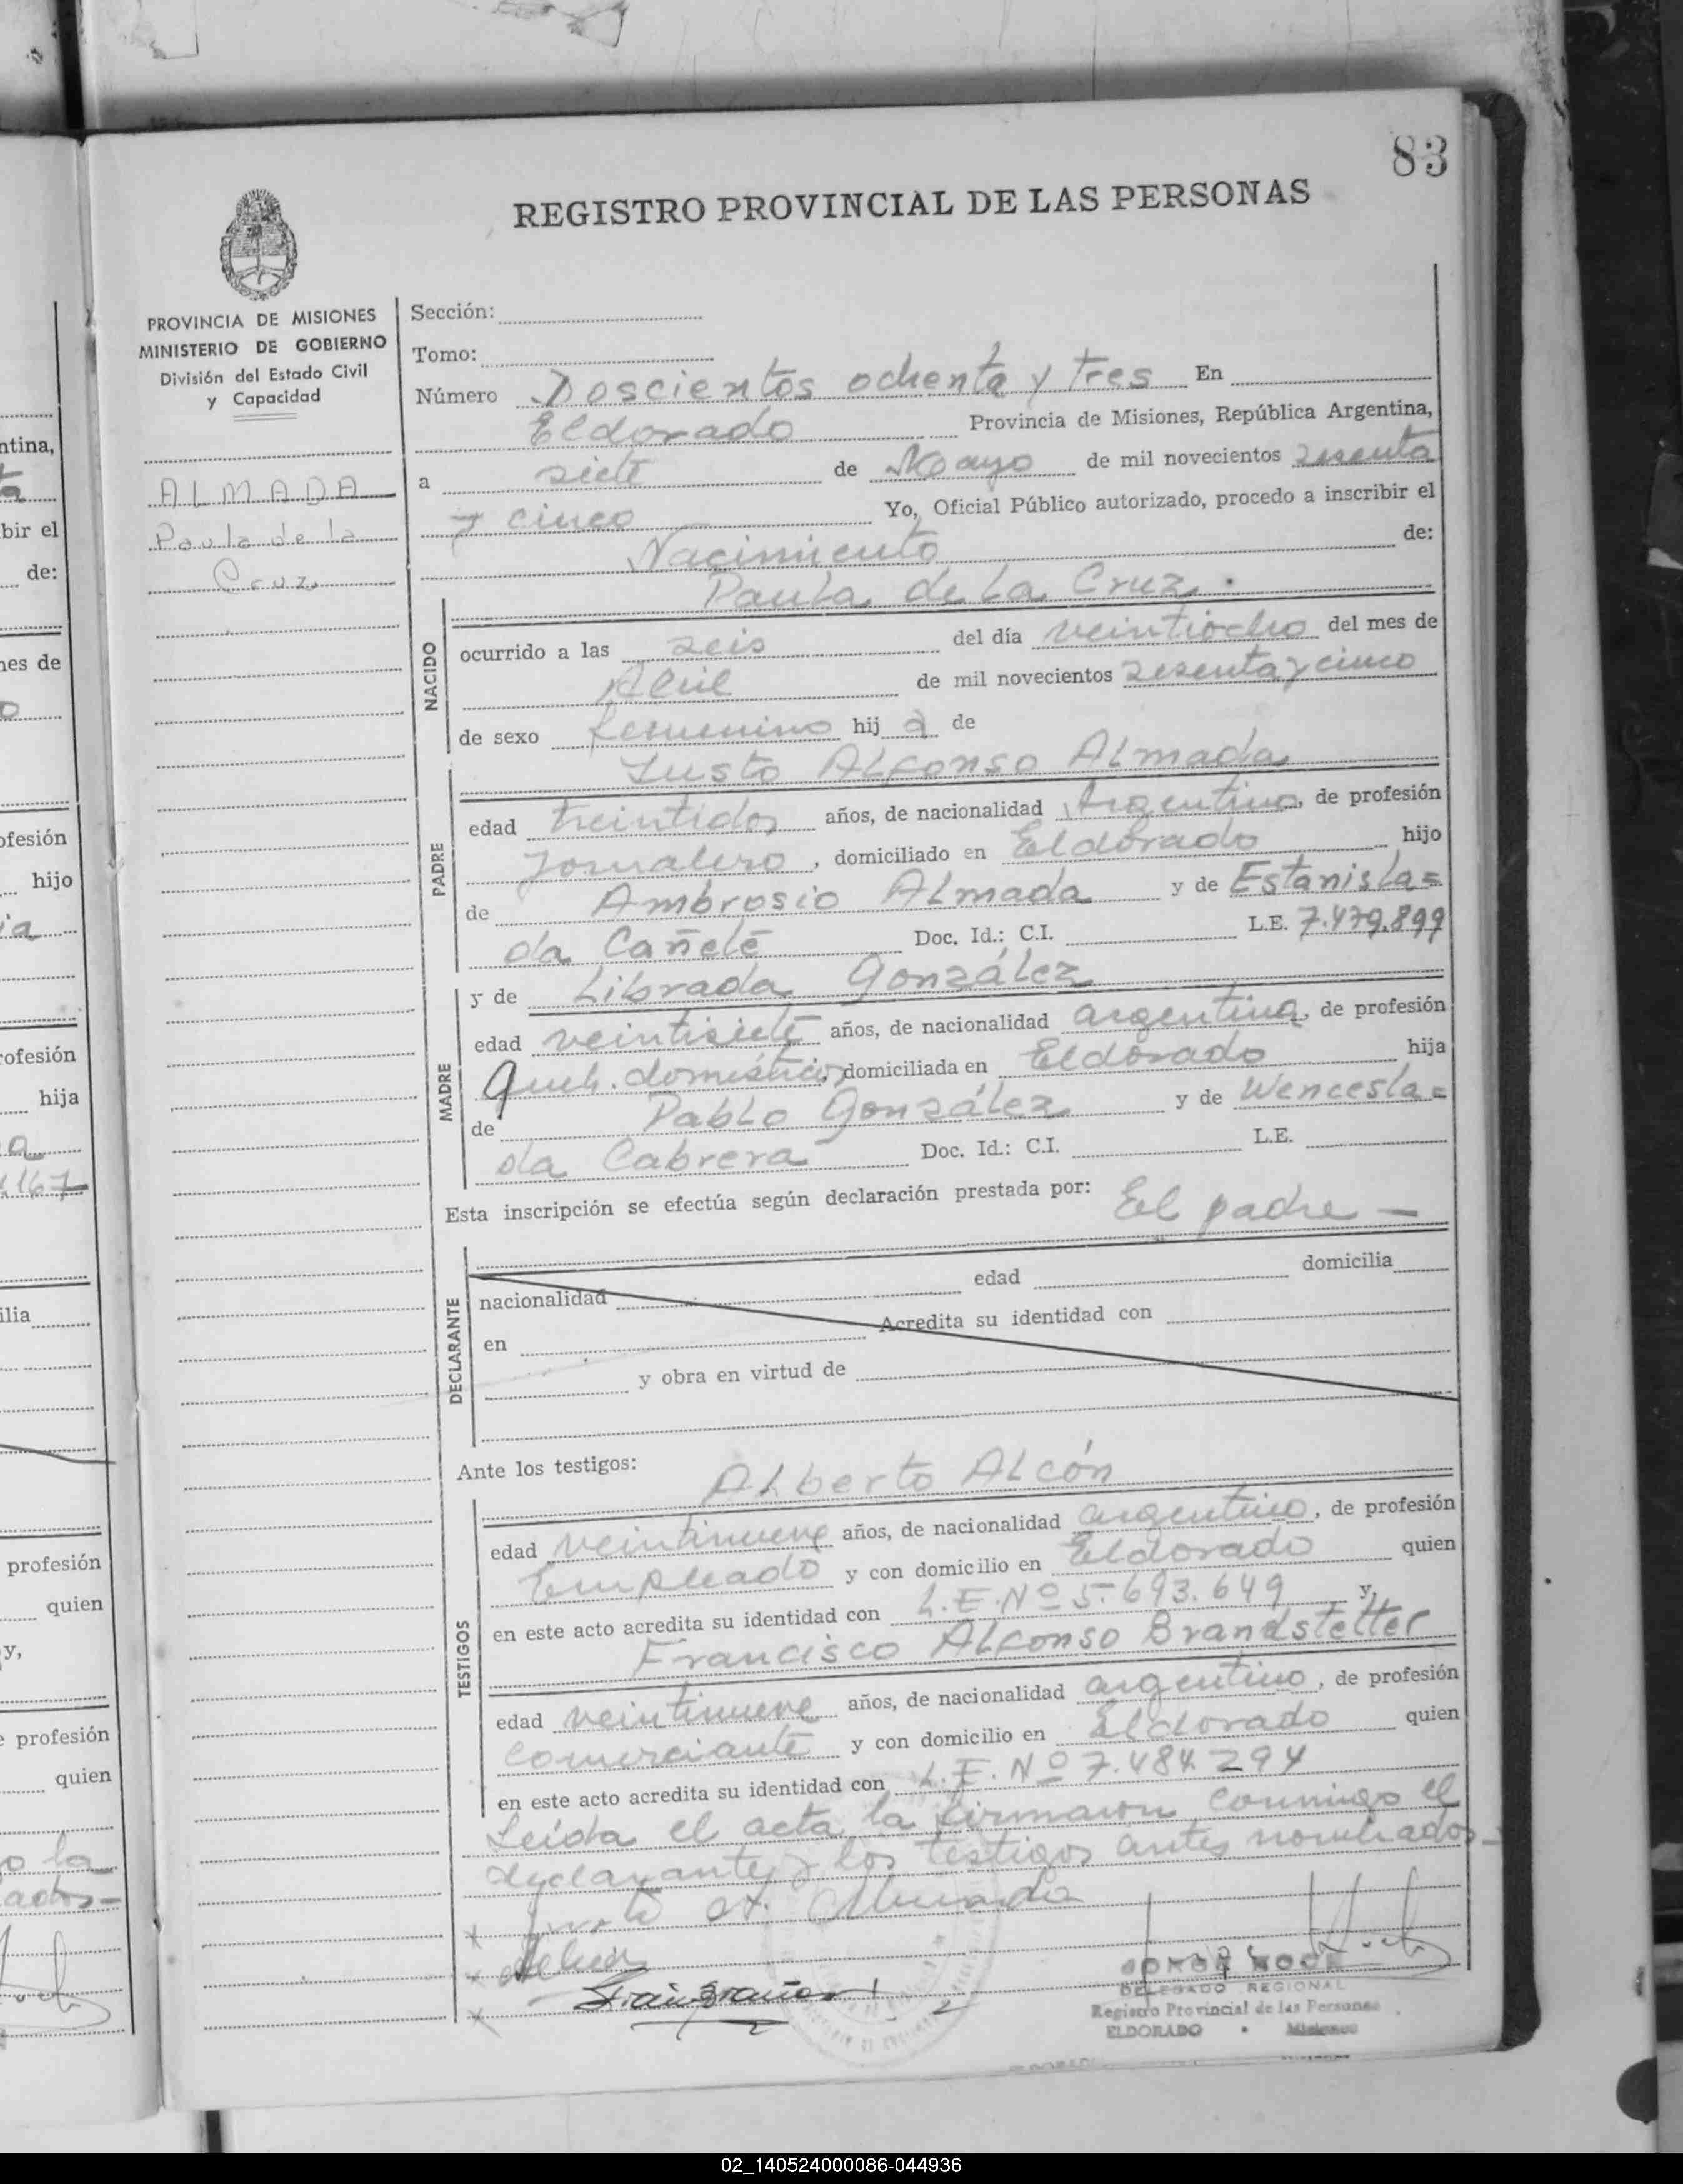 83
REGISTRO PROVINCIAL DE LAS PERSONAS
PROVINCIA DE MISIONES
MINISTERIO DE GOBIERNO
División del Estado Civil
y Capacidad
ALMADA
Paula de la
Cruz
Sección:
Tomo:
Número Doscientos ochenta y tres En
Eldorado Provincia de Misiones, República Argentina,
a siete de Mayo de mil novecientos sesenta
y cinco Yo, Oficial Público autorizado, procedo a inscribir el
Nacimiento de:
Paula de la Cruz.
NACIDO
ocurrido a las seis del día veintiocho del mes de
Abril de mil novecientos sesenta y cinco
de sexo femenino hija de
Justo Alfonso Almada
PADRE
edad treintidos años, de nacionalidad Argentino, de profesión
Jornalero, domiciliado en Eldorado hijo
de Ambrosio Almada y de Estanisla=
da Cañete Doc. Id.: C.I. L.E. 7.479.899
y de Librada González
MADRE
edad veintisiete años, de nacionalidad argentina, de profesión
Queh. domésticos, domiciliada en Eldorado hija
de Pablo González y de Wencesla=
da Cabrera Doc. Id.: C.I. L.E.
Esta inscripción se efectúa según declaración prestada por: El padre —
DECLARANTE
edad domicilia
nacionalidad
en Acredita su identidad con
y obra en virtud de
Ante los testigos: Alberto Alcón
TESTIGOS
edad veintinueve años, de nacionalidad argentino, de profesión
Empleado y con domicilio en Eldorado quien
en este acto acredita su identidad con L.E. Nº 5.693.649 y,
Francisco Alfonso Brandstetter
edad veintinueve años, de nacionalidad argentino, de profesión
comerciante y con domicilio en Eldorado quien
en este acto acredita su identidad con L.E. Nº 7.484.294
Leída el acta la firmaron conmigo el
declarante y los testigos antes nombrados-
Justo A. Almada
DELEGADO REGIONAL
Registro Provincial de las Personas
ELDORADO - Misiones
ntina,
bir el
de:
nes de
ofesión
hijo
ia
rofesión
hija
167
ilia
profesión
quien
y,
profesión
quien
o la
ados-
02_140524000086-044936